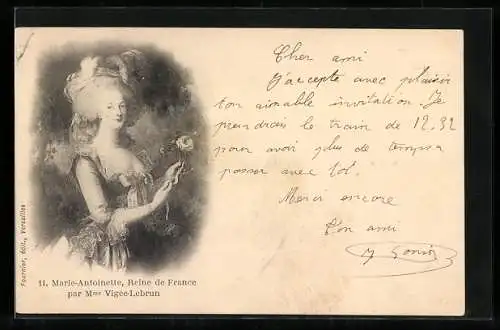 Cher ami
J'accepte avec plaisir
ton aimable invitation. Je
prendrais le train de 12.32
pour avoir plus de temps a
passer avec toi.
Merci encore
Ton ami
11. Marie-Antoinette, Reine de France
par Mme Vigée-Lebrun
Fournier, édit., Versailles